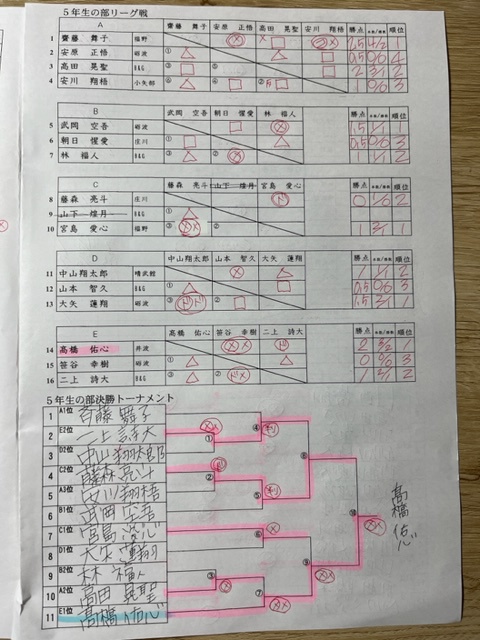 5年生の部リーグ戦
A 齋藤 舞子 安原 正悟 高田 晃聖 安川 翔梧 勝点 順位
1 齋藤 舞子 福野 2.5 4/2 1
2 安原 正悟 砺波 ① 0.5 0/6 4
3 高田 晃聖 B&G ③ ⑤ 2 3/1 2
4 安川 翔梧 小矢部 ④ ② 1 0/6 3
B 武岡 空吾 朝日 惺愛 林 福人 勝点 順位
5 武岡 空吾 砺波 1.5 1/1 1
6 朝日 惺愛 庄川 ① 0.5 0/6 3
7 林 福人 B&G ③ ② 1 1/1 2
C 藤森 亮斗 山下 煌丹 宮島 愛心 勝点 順位
8 藤森 亮斗 庄川 0 1/6 2
9 山下 煌丹 B&G ①
10 宮島 愛心 福野 ③ 1 2/1 1
D 中山翔太郎 山本 智久 大矢 蓮翔 勝点 順位
11 中山翔太郎 晴武館 1 1/1 2
12 山本 智久 B&G ① 0.5 0/6 3
13 大矢 蓮翔 砺波 ③ ② 1.5 2/1 1
E 高橋 佑心 笹谷 幸樹 二上 詩大 勝点 順位
14 高橋 佑心 井波 2 3/2 1
15 笹谷 幸樹 砺波 ① 0 0/6 3
16 二上 詩大 B&G ③ ② 1 2/2 2
5年生の部決勝トーナメント
1 A1位 斉藤 舞子
2 E2位 二上 詩大
3 D2位 中山 翔太郎
4 C2位 藤森 亮斗
5 A3位 安川 翔梧
6 B1位 武岡 空吾
7 C1位 宮島 愛心
8 D1位 大矢 蓮翔
9 B2位 林 福人
10 A2位 高田 晃聖
11 E1位 高橋 佑心
① ② ③ ④ ⑤ ⑥ ⑦ ⑧ ⑨ ⑩
高橋 佑心